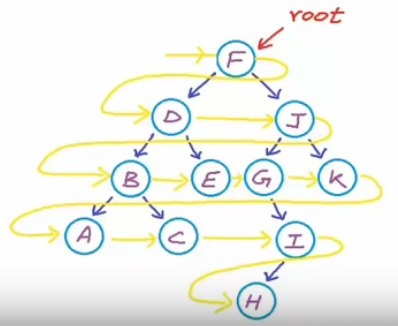 root
F
D J
B E G K
A C I
H